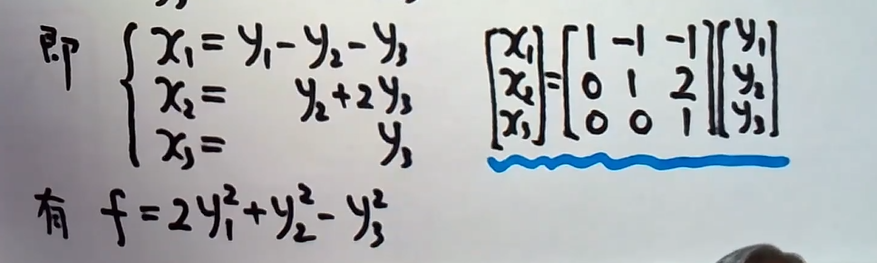 即 { x₁ = y₁ - y₂ - y₃
x₂ = y₂ + 2y₃
x₃ = y₃
[x₁ x₂ x₃] = [1 -1 -1; 0 1 2; 0 0 1][y₁ y₂ y₃]
有 f = 2y₁² + y₂² - y₃²